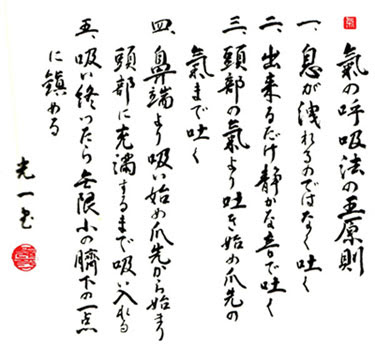 氣の呼吸法の五原則
一、息が洩れるのではなく吐く
二、出来るだけ静かな音で吐く
三、頭部の氣より吐き始め爪先の
氣まで吐く
四、鼻端より吸い始め爪先から始まり
頭部に充満するまで吸い入れる
五、吸い終ったら無限小の臍下の一点
に鎮める
光一書